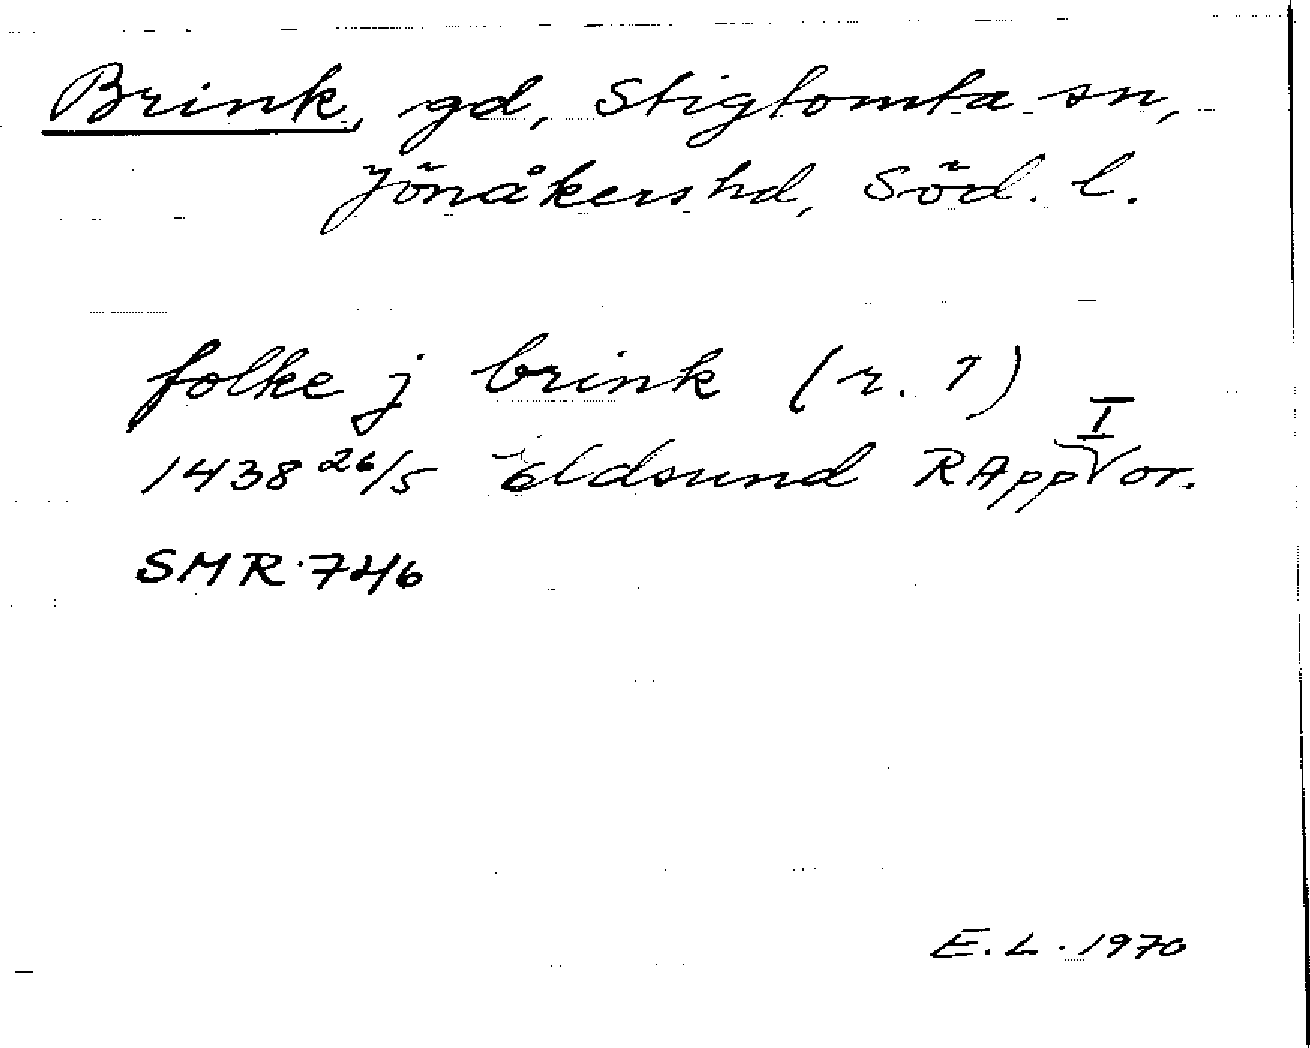 Brink, gd, Stigtomta sn,
Jönåkers hd, Söd. l.
folke j brink (r. 1)
1438 26/5 Eldsund RApp I or.
SMR 746
E. L. 1970